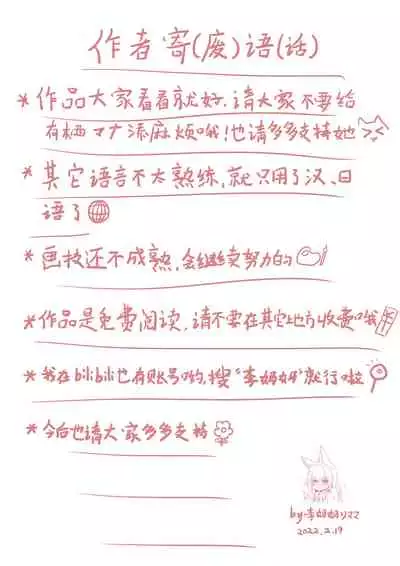 作者寄(废)语(话)
*作品大家看看就好,请大家不要给
有栖ママ添麻烦哦!也请多多支持她
*其它语言不太熟练,就只用了汉、日
语了
*画技还不成熟,会继续努力的
*作品是免费阅读,请不要在其它地方收费哦
*我在bilibili也有账号哟,搜"李奶奶"就行啦
*今后也请大家多多支持
by:李奶奶りママ
2022.2.19